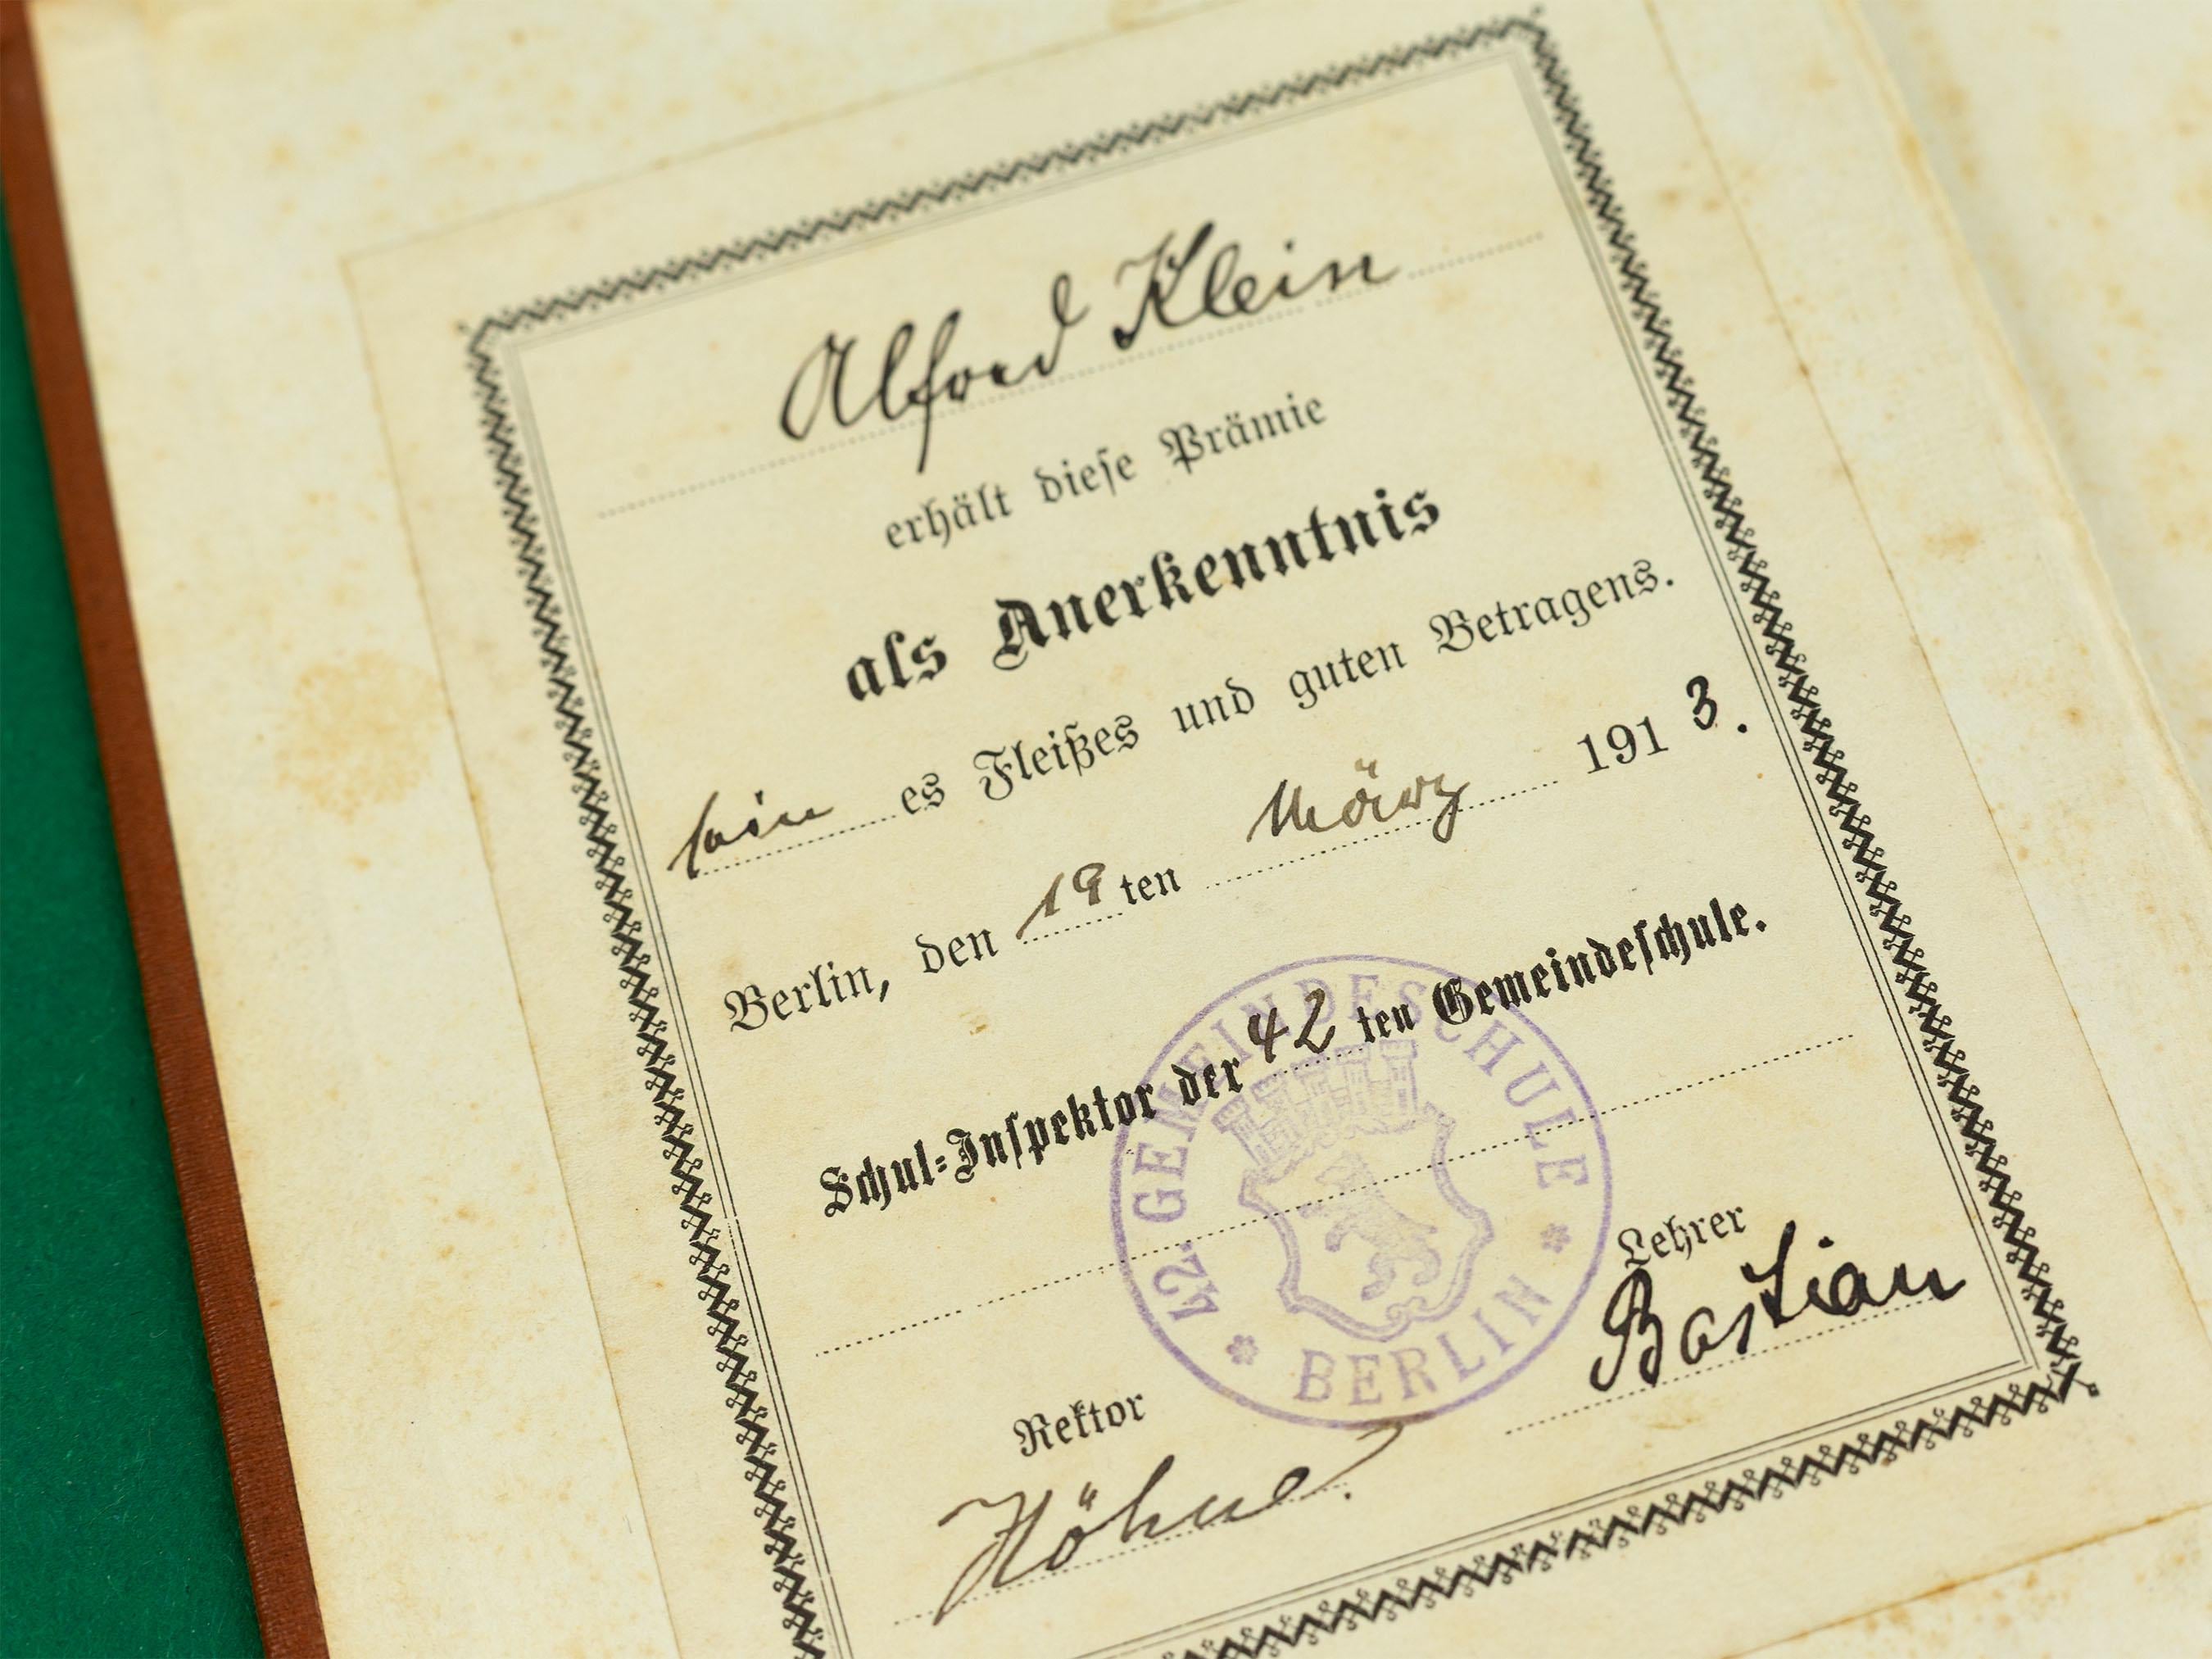 Alfred Klein
erhält diese Prämie
als Anerkenntnis
seines Fleißes und guten Betragens.
Berlin, den 19ten März 1913.
Schul-Inspektor der 42ten Gemeindeschule.
42. GEMEINDESCHULE
BERLIN
Lehrer
Bastian
Rektor
Höhne.